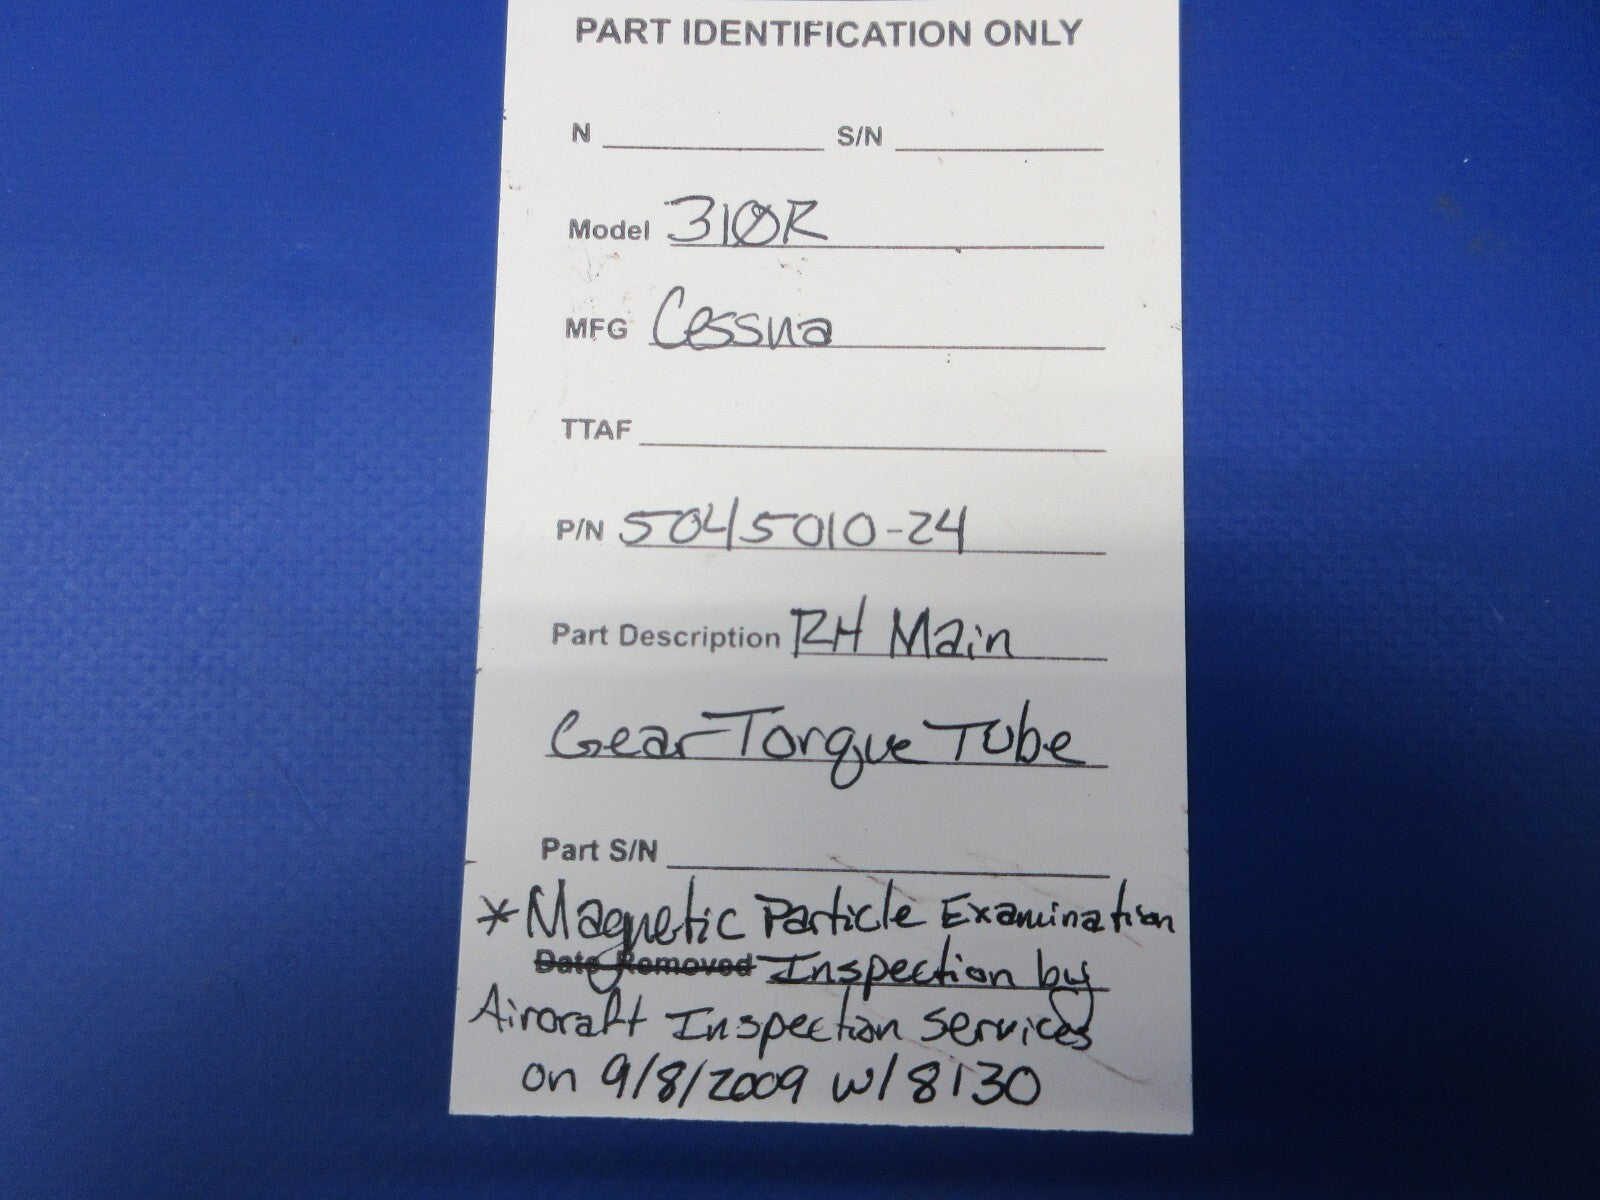 PART IDENTIFICATION ONLY
N S/N
Model 310R
MFG Cessna
TTAF
P/N 5045010-24
Part Description RH Main
Gear Torque Tube
Part S/N
* Magnetic Particle Examination
Date Removed Inspection by
Aircraft Inspection Services
on 9/8/2009 w/ 8130